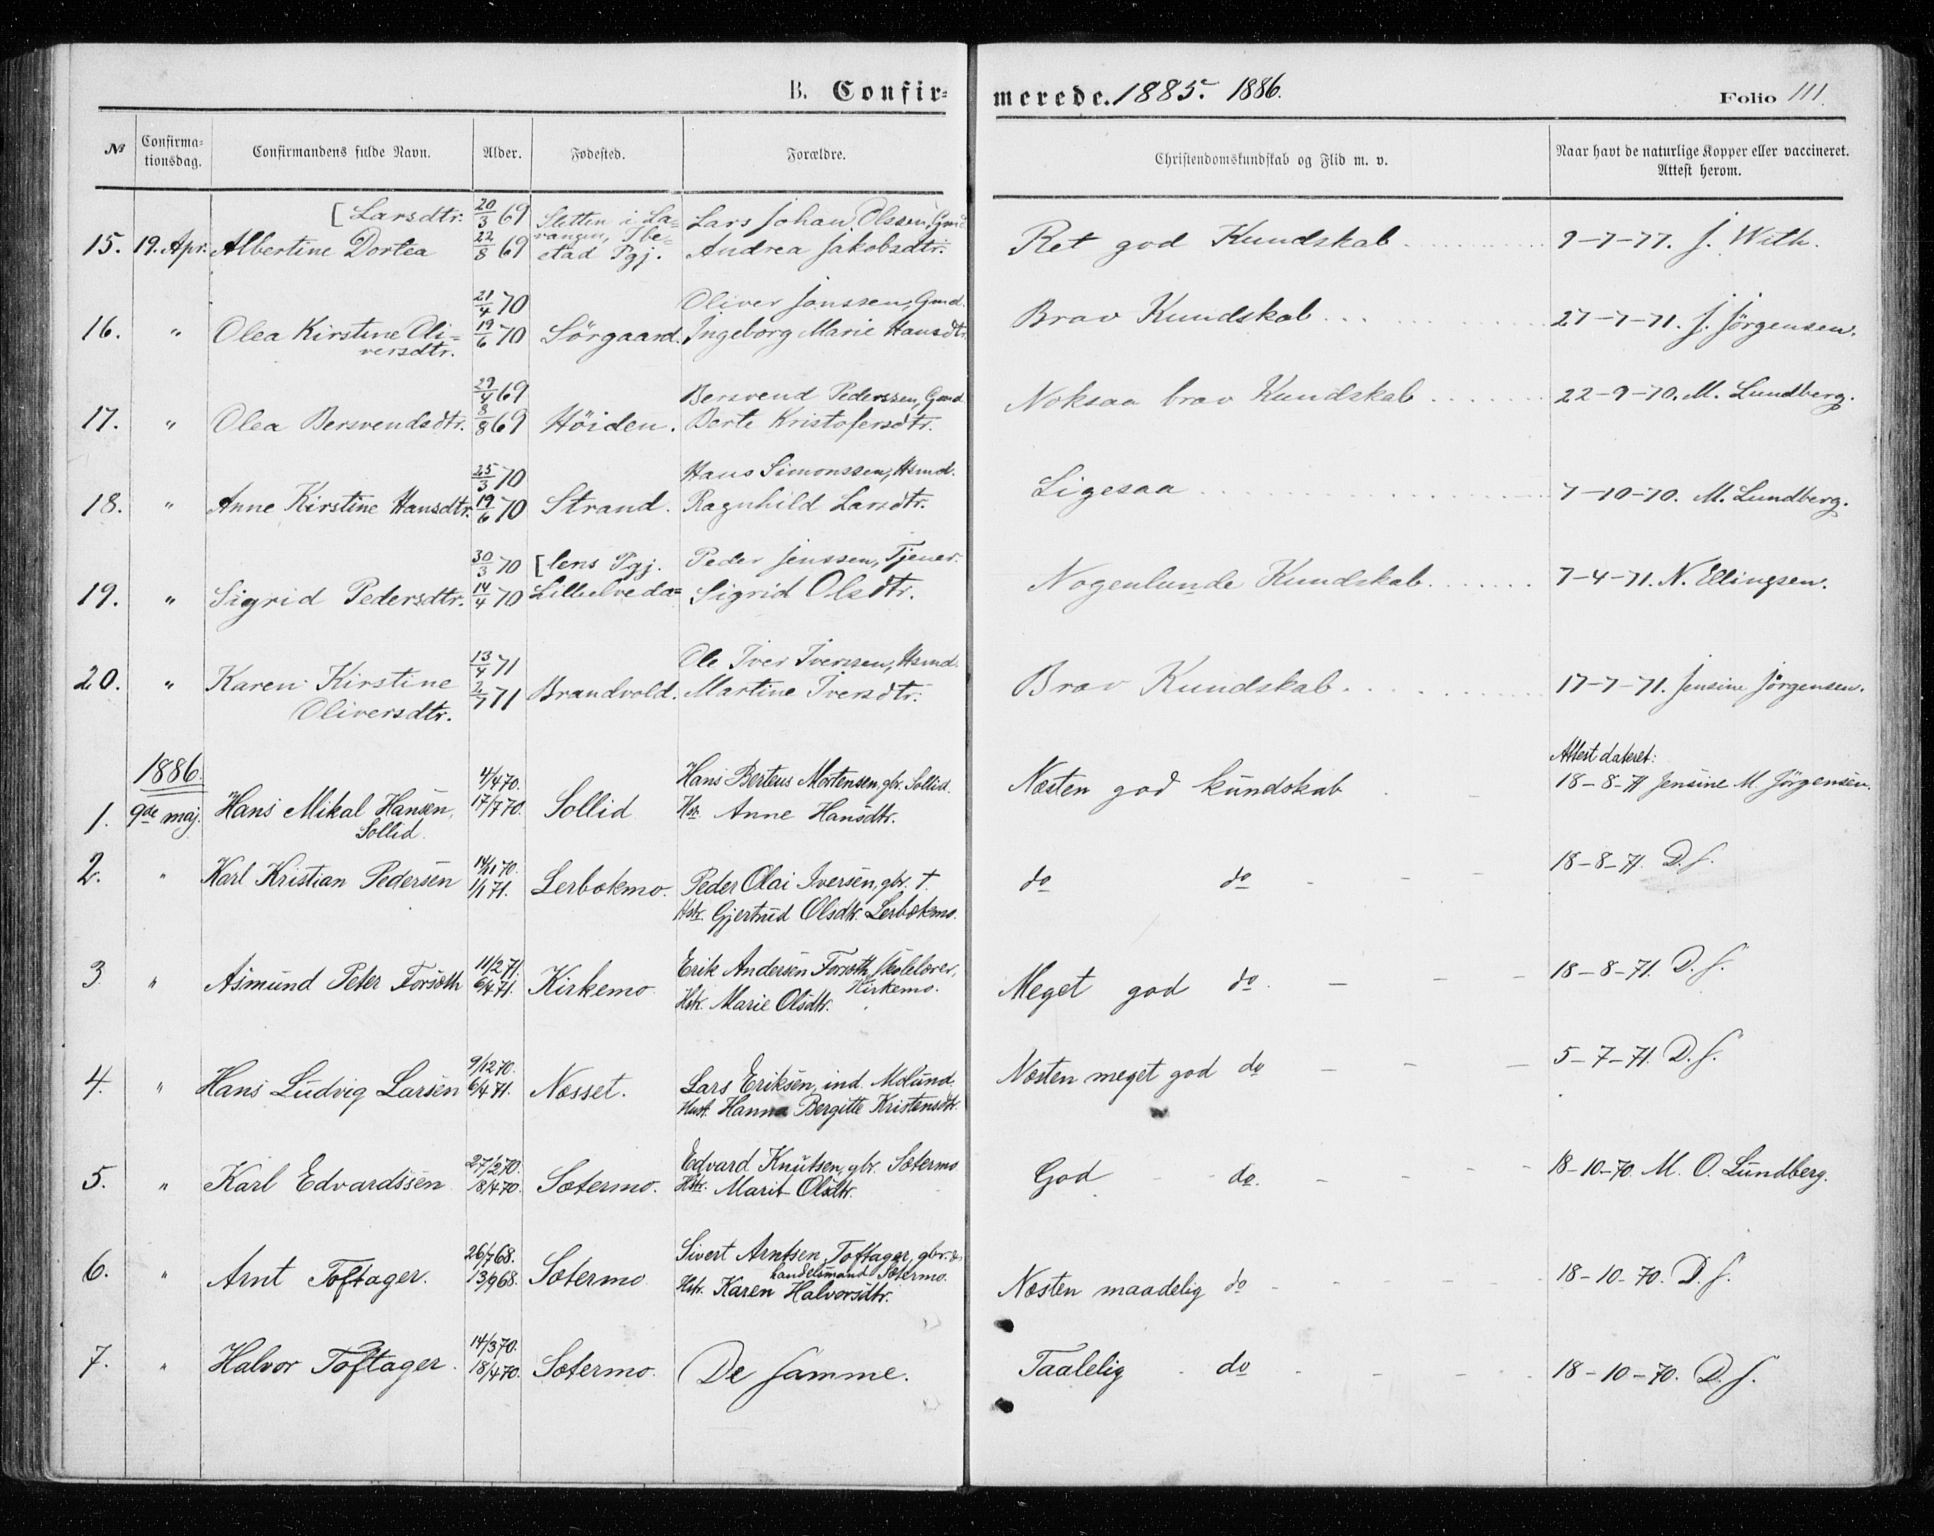 B. Confir= merede. 1885. 1886. Folio 111.
№ Confirma-tionsdag. Confirmandens fulde Navn. Alder. Fødested. Forældre. Christendomskundskab og Flid m. v. Naar havt de naturlige Kopper eller vaccineret. Attest herom.
[Larsdtr. 20/3 69 Sletten i La= Lars Johan Olssen, Gmd
vangen, Ibe=
15. 19. Apr. Albertine Dortea 22/8 69 stad Pgj. Andrea Jakobsdtr. Ret god Kundskab 9-7-77. J. With.
21/4 70 Oliver Jonssen, Gmd.
16. " Olea Kirstine Oli= 19/6 70 Sörgaard. Ingeborg Marie Hansdtr. Brav Kundskab 27-7-71. J. Jörgensen.
versdtr.
29/4 69 Bersvend Pederssen, Gmd.
17. " Olea Bersvendsdtr. 8/8 69 Höiden. Berte Kristofersdtr. Noksaa brav Kundskab 22-9-70. M. Lundberg.
25/3 70 Hans Simonssen, Hsmd.
18. " Anne Kirstine Hansdtr. 19/6 70 Strand. Ragnhild Larsdtr. Ligesaa 7-10-70. M. Lundberg.
30/3 70 [lens Pgj. Peder Jenssen, Tjener.
19. " Sigrid Pedersdtr. 14/4 70 Lillelveda= Sigrid Olsdtr. Nogenlunde Kundskab 7-4-71. N. Ellingsen.
13/4 71 Ole Iver Iverssen, Hsmd.
20. " Karen Kirstine 2/7 71 Brandvold. Martine Iversdtr. Brav Kundskab 17-7-71. Jensine Jörgensen.
Oliversdtr.
1886. Attest dateret:
4/4 70. Hans Berteus Mortensen, gbr. Sollid.
1. 9de maj. Hans Mikal Hansen, 17/7 70. Sollid Hstr. Anne Hansdtr. Næsten god kundskab 18-8-71 Jensine M. Jörgensen.
Sollid.
14/11 70.
2. " Karl Kristian Pedersen 1/1 71. Lerbækmo. Peder Olai Iversen, gbr. † do do 18-8-71. D. S.
Hstr. Gjertrud Olsdtr. Lerbækmo.
11/2 71. Erik Andersen Forsæth, skolelærer,
Kirkemo.
3 " Asmund Peter Forsæth 6/4 71. Kirkemo Hstr. Marie Olsdtr. Meget god do 18-8-71. D. S.
9/12 70.
4. " Hans Ludvig Larsen 6/4 71. Næsset. Lars Eriksen, ind. Mølund. Næsten meget god do 5-7-71. D. S.
Hust. Hanna Bergitte Kristensdtr.
27/2 70. Edvard Knutsen, gbr. Sætermo
5. " Karl Edvardssen 18/4 70. Sætermo. Hstr. Marit Olsdtr. God do. 18-10-70. M. O. Lundberg.
26/7 68. Sivert Arntsen Toftager, gbr. &
handelsmand Sætermo.
6. " Arnt Toftager. 13/9 68. Sætermo Hstr. Karen Halvorsdtr. Næsten maadelig do 18-10-70. D. S.
14/3 70.
7. " Halvor Toftager. 18/4 70. Sætermo. De samme. Taalelig do 18-10-70. D. S.